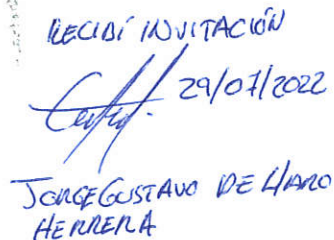 RECIBÍ INVITACIÓN
29/07/2022
JORGE GUSTAVO DE HARO
HERRERA